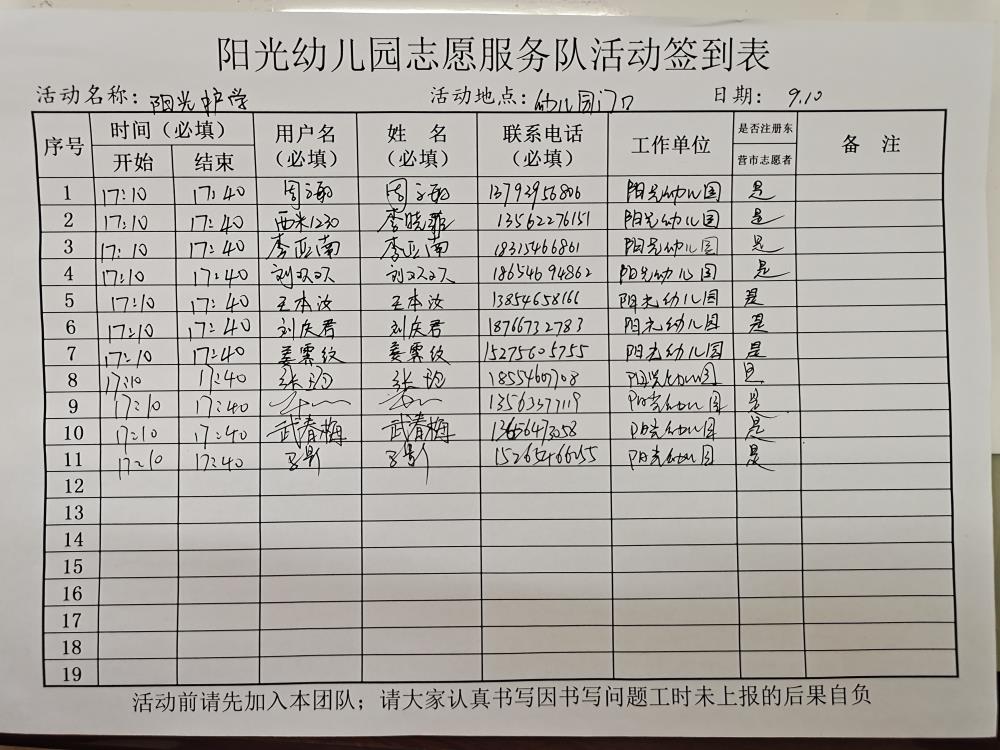 阳光幼儿园志愿服务队活动签到表
活动名称：阳光护学 活动地点：幼儿园门口 日期：9.10
序号 时间（必填） 用户名（必填） 姓 名（必填） 联系电话（必填） 工作单位 是否注册东营市志愿者 备 注
开始 结束
1 17:10 17:40 13792956806 阳光幼儿园 是
2 17:10 17:40 西米1230 李晓菲 13562276151 阳光幼儿园 是
3 17:10 17:40 李亚南 李亚南 18315466861 阳光幼儿园 是
4 17:10 17:40 刘双双 刘双双 18654694862 阳光幼儿园 是
5 17:10 17:40 王本汝 王本汝 13854658166 阳光幼儿园 是
6 17:10 17:40 刘庆君 刘庆君 18766732783 阳光幼儿园 是
7 17:10 17:40 姜霁纹 姜霁纹 15275605755 阳光幼儿园 是
8 17:10 17:40 阳光幼儿园 是
9 17:10 17:40 13563377119 阳光幼儿园 是
10 17:10 17:40 武春梅 武春梅 阳光幼儿园 是
11 17:10 17:40 阳光幼儿园 是
12
13
14
15
16
17
18
19
活动前请先加入本团队；请大家认真书写因书写问题工时未上报的后果自负